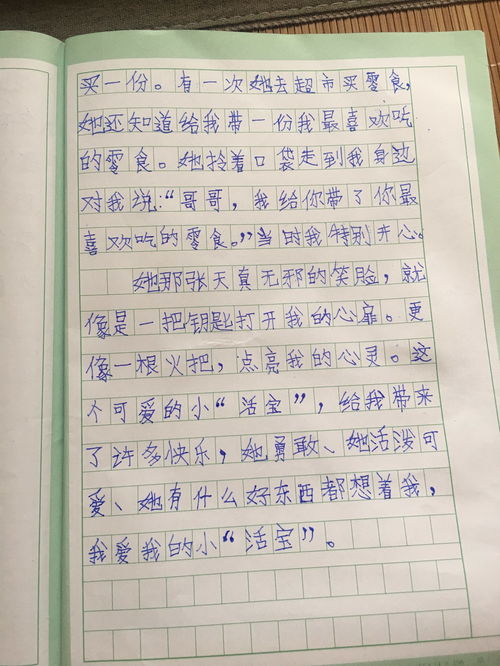 买一份。有一次她去超市买零食，
她还知道给我带一份我最喜欢吃
的零食。她拎着口袋走到我身边
对我说：“哥哥，我给你带了你最
喜欢吃的零食。”当时我特别开心。
她那张天真无邪的笑脸，就
像是一把钥匙打开我的心扉。更
像一根火把，点亮我的心灵。这
个可爱的小“活宝”，给我带来
了许多快乐，她勇敢、她活泼可
爱、她有什么好东西都想着我，
我爱我的小“活宝”。